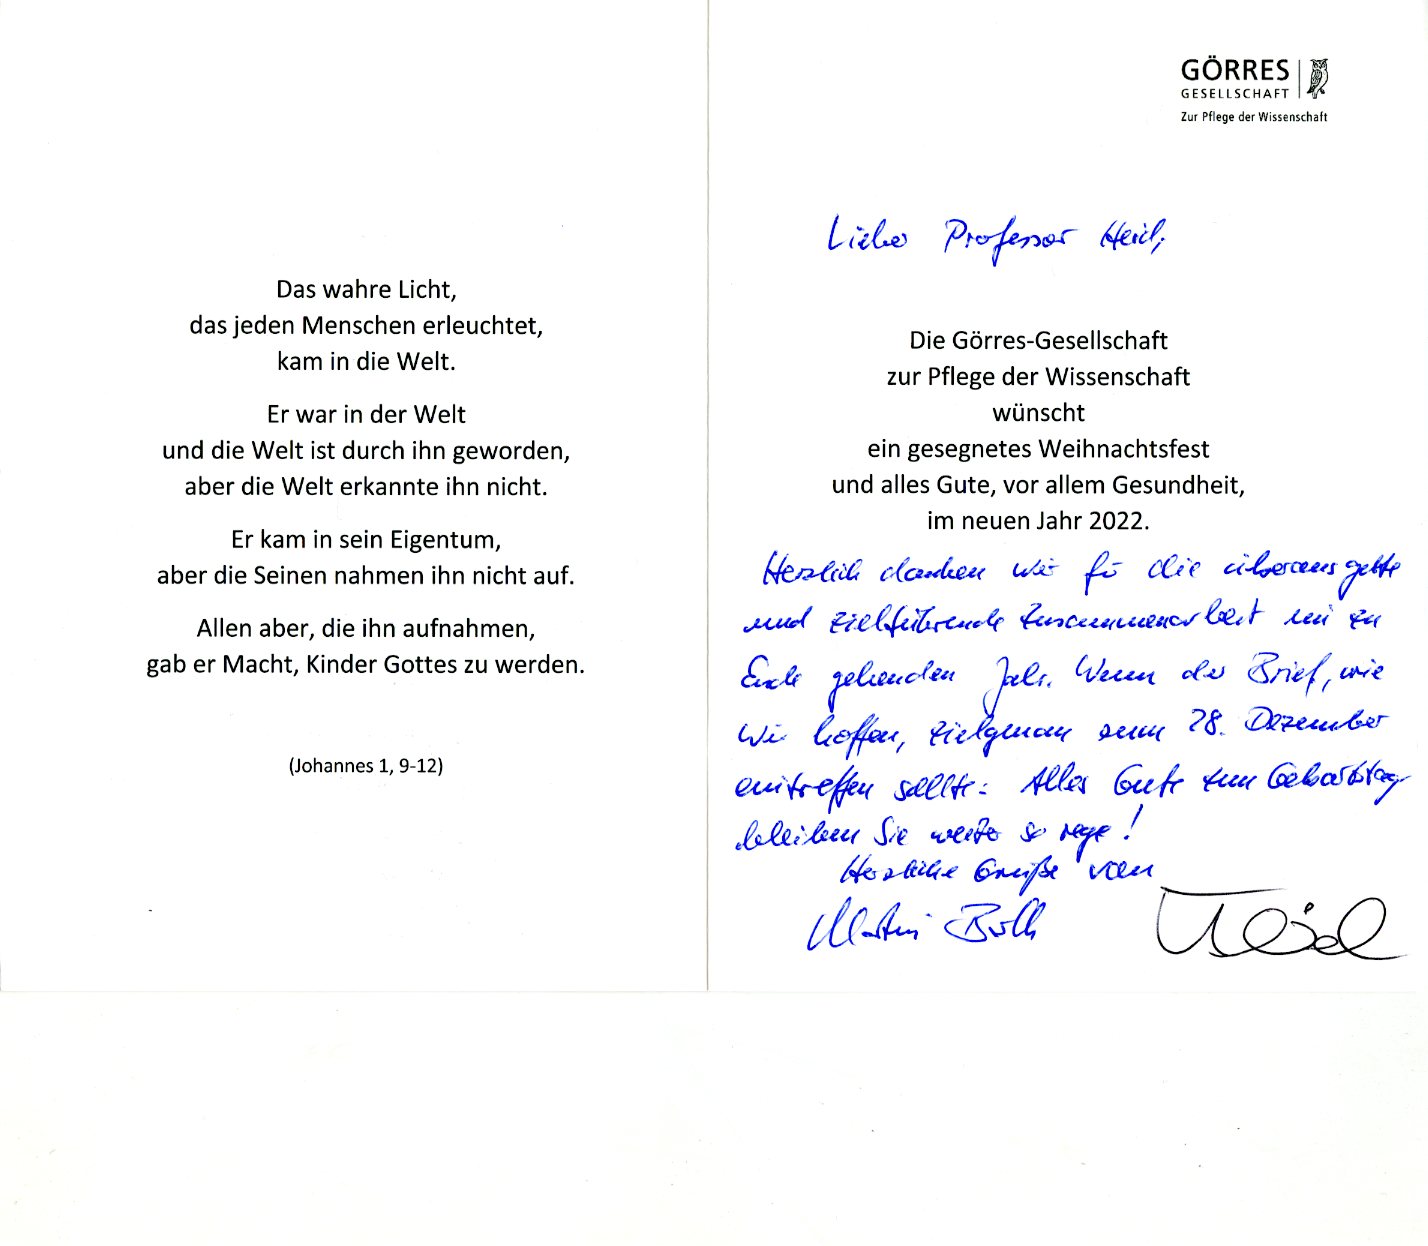 Das wahre Licht,
das jeden Menschen erleuchtet,
kam in die Welt.
Er war in der Welt
und die Welt ist durch ihn geworden,
aber die Welt erkannte ihn nicht.
Er kam in sein Eigentum,
aber die Seinen nahmen ihn nicht auf.
Allen aber, die ihn aufnahmen,
gab er Macht, Kinder Gottes zu werden.
(Johannes 1, 9-12)
GÖRRES
GESELLSCHAFT
Zur Pflege der Wissenschaft
Lieber Professor
Die Görres-Gesellschaft
zur Pflege der Wissenschaft
wünscht
ein gesegnetes Weihnachtsfest
und alles Gute, vor allem Gesundheit,
im neuen Jahr 2022.
Herzlich danken wir für die überaus
und zielführende Zusammenarbeit im zu
Ende gehenden Jahr. Wenn der Brief, wie
wir hoffen, zielgenau zum 28. Dezember
eintreffen sollte: Alles Gute zum Geburtstag
bleiben Sie weiter so rege!
Herzliche Grüße von
Martin